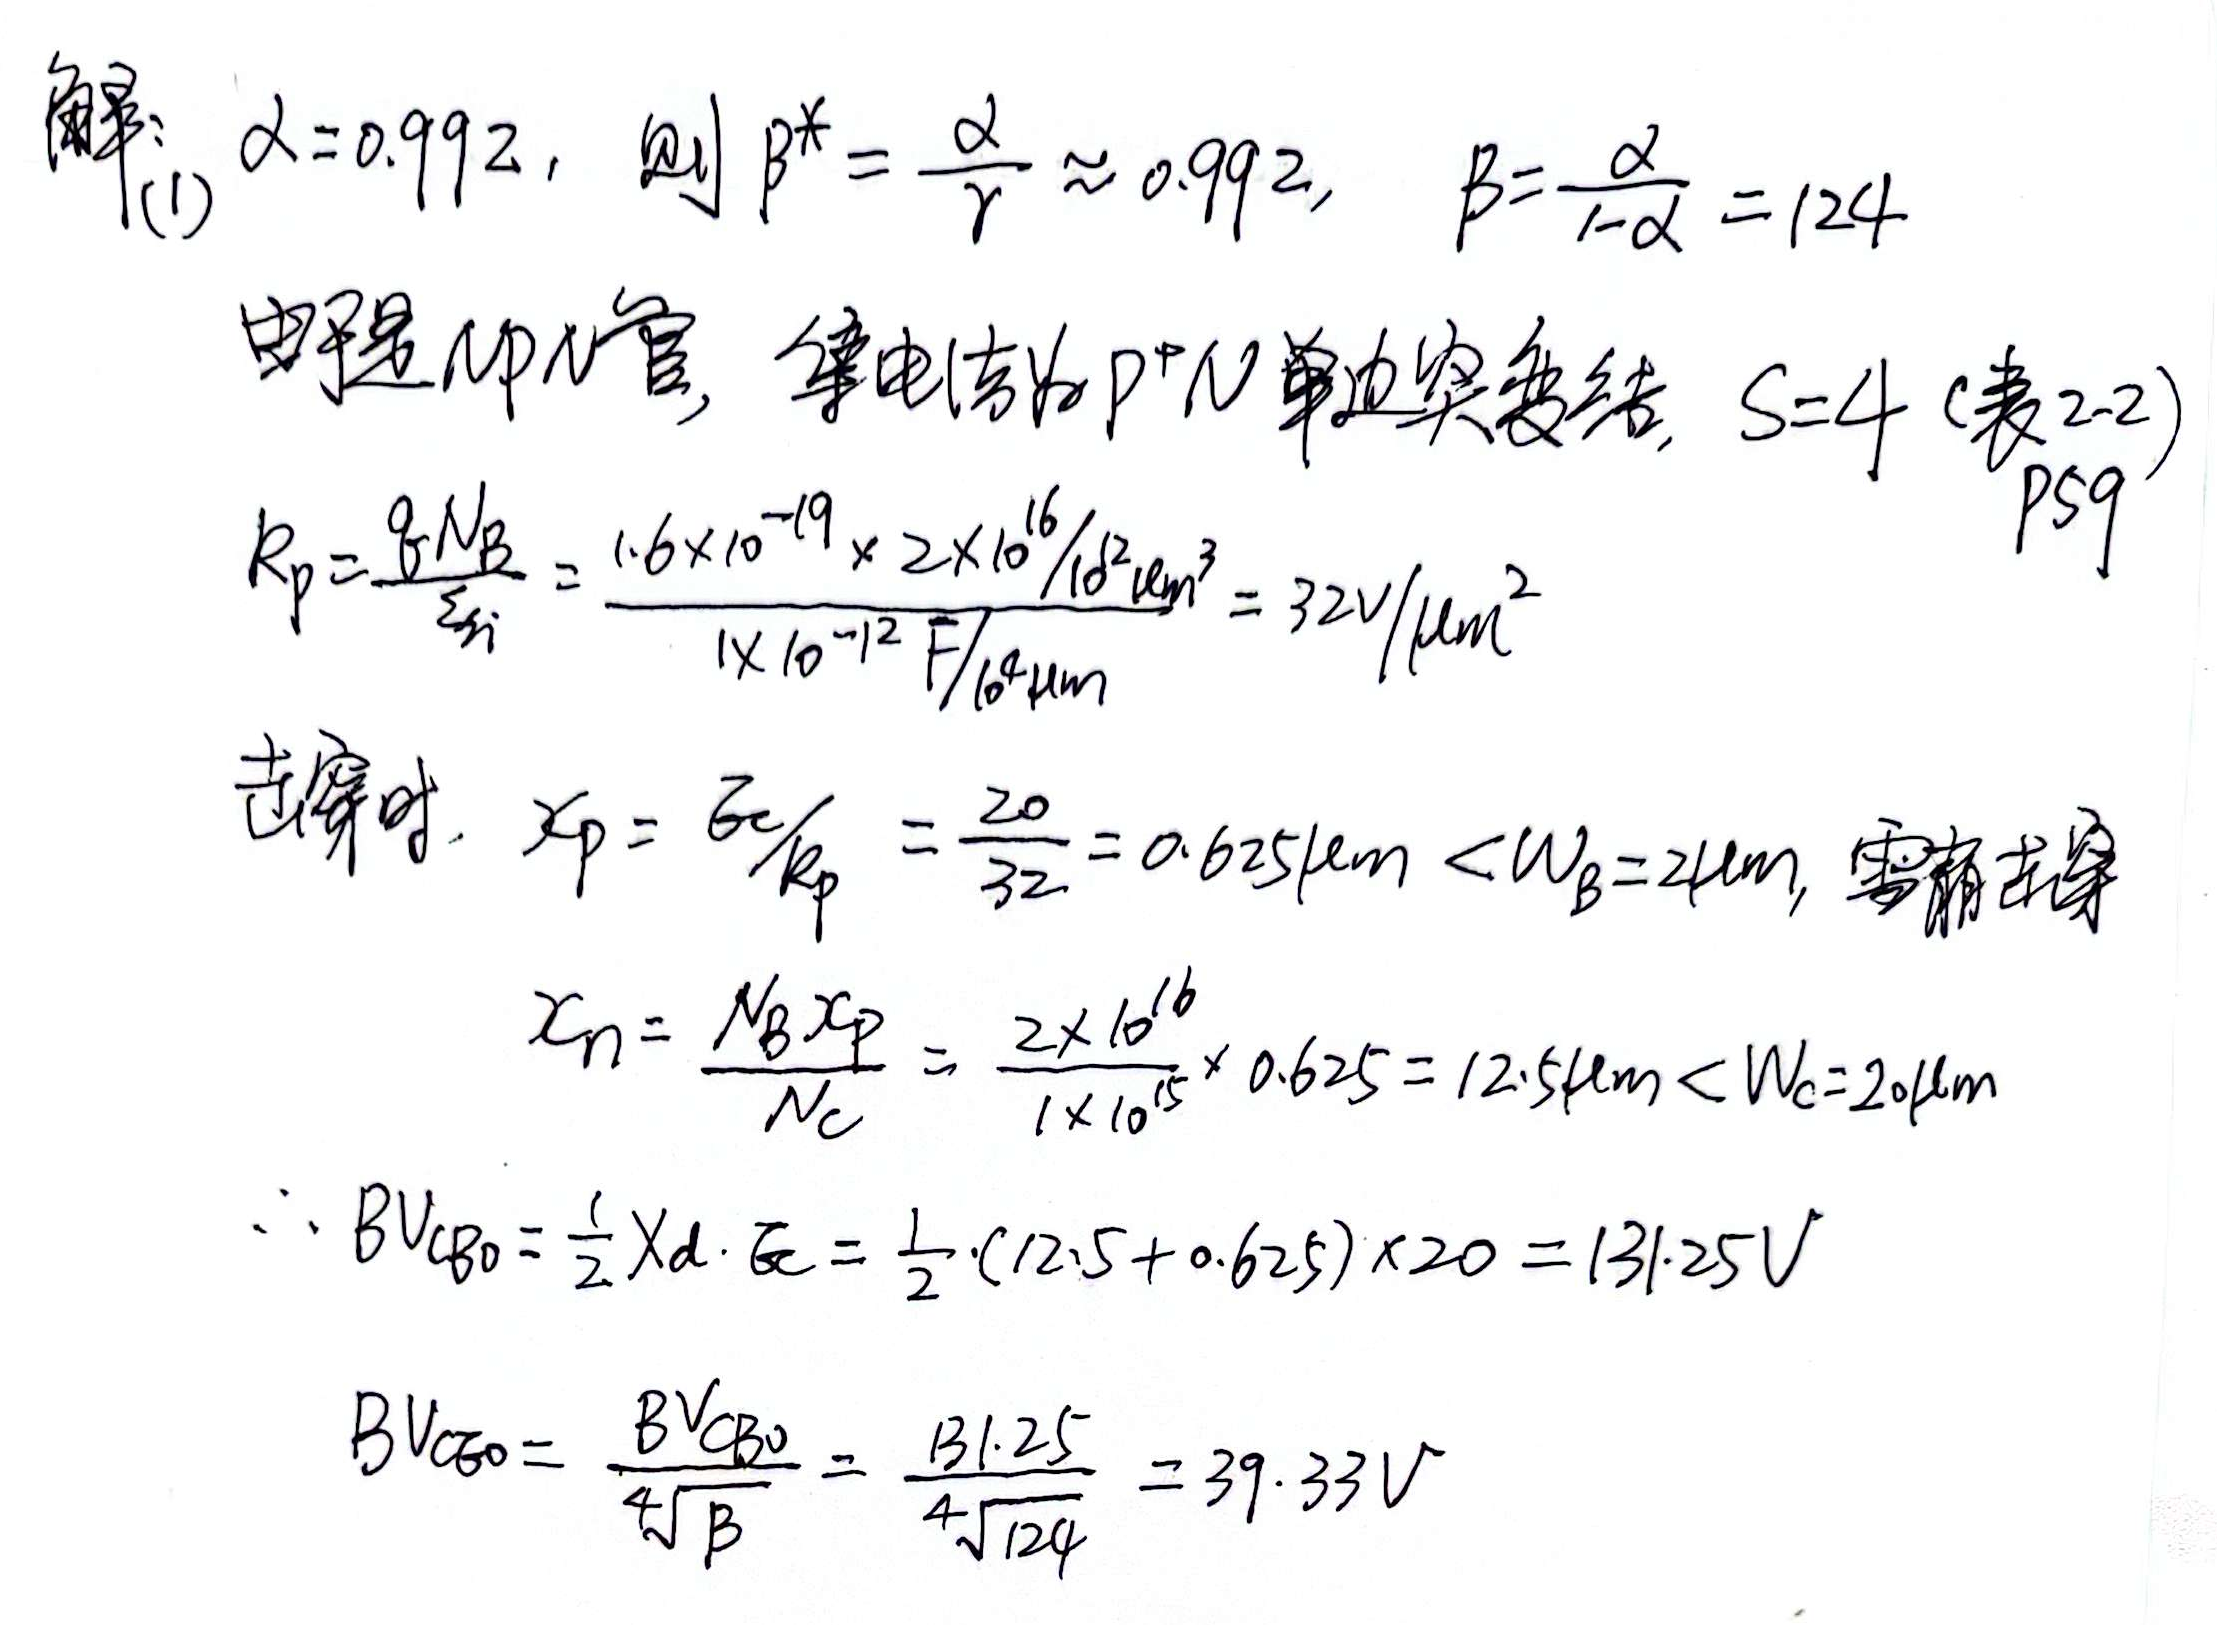 解:(1) α=0.992, 则 β* = α/γ ≈ 0.992, β = α/(1-α) = 124
由于是NPN管, 集电结为P⁺N单边突变结, S=4 (表2-2) P59
Kp = qN_B/ε_si = (1.6×10⁻¹⁹ × 2×10¹⁶/10¹²μm³)/(1×10⁻¹² F/10⁴μm) = 32V/μm²
击穿时. xp = Ec/Kp = 20/32 = 0.625μm < W_B=2μm, 雪崩击穿
xn = N_B xp/N_C = (2×10¹⁶)/(1×10¹⁵) × 0.625 = 12.5μm < Wc=20μm
∴ BV_CBO = 1/2 Xd·Ec = 1/2·(12.5+0.625)×20 = 131.25V
BV_CEO = BV_CBO/⁴√β = 131.25/⁴√124 = 39.33V